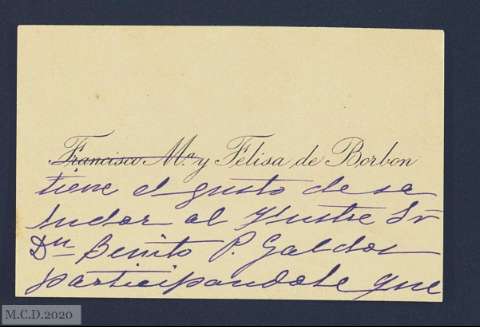 Francisco Mª y Felisa de Borbon
tiene el gusto de sa
ludar al Ilustre Sr
Dn Benito P. Galdos
participandole que
M.C.D.2020